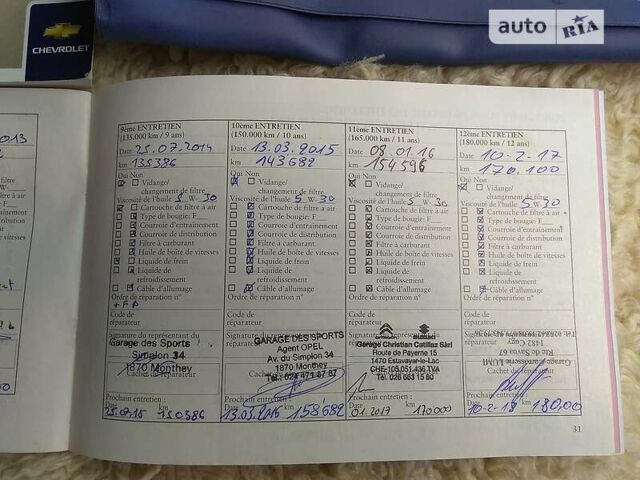 CHEVROLET
auto RIA
2013
9ème ENTRETIEN
(135.000 km / 9 ans)
Date 25.07.2014
km 135386
Oui Non
Vidange/
changement de filtre
Viscosité de l'huile 5 W- 30
Cartouche de filtre à air
Type de bougie: F
Courroie d'entraînement
Courroie de distribution
Filtre à carburant
Huile de boîte de vitesses
Liquide de frein
Liquide de
refroidissement
Câble d'allumage
Ordre de réparation n°
Code de
réparateur
Signature du représentant du
Garage des Sports
Simplon 34
1870 Monthey
Prochain entretien :
Date km
25.07.15 150386
10ème ENTRETIEN
(150.000 km / 10 ans)
Date 13.03.2015
km 143682
Oui Non
Vidange/
changement de filtre
Viscosité de l'huile 5 W- 30
Cartouche de filtre à air
Type de bougie: F
Courroie d'entraînement
Courroie de distribution
Filtre à carburant
Huile de boîte de vitesses
Liquide de frein
Liquide de
refroidissement
Câble d'allumage
Ordre de réparation n°
Code de
réparateur
GARAGE DES SPORTS
Agent OPEL
Av. du Simplon 34
1870 Monthey
Tél. 024 471 67 87
Prochain entretien :
Date km
13.03.2016 158682
11ème ENTRETIEN
(165.000 km / 11 ans)
Date 08.01.16
km 154596
Oui Non
Vidange/
changement de filtre
Viscosité de l'huile 5 W- 30
Cartouche de filtre à air
Type de bougie: F
Courroie d'entraînement
Courroie de distribution
Filtre à carburant
Huile de boîte de vitesses
Liquide de frein
Liquide de
refroidissement
Câble d'allumage
Ordre de réparation n°
Code de
réparateur
SUZUKI
Garage Christian Catillaz Sàrl
Route de Payerne 15
1470 Estavayer-le-Lac
CHE-105.051.436 TVA
Tél. 026 663 15 80
Prochain entretien :
Date km
01.2017 170000
12ème ENTRETIEN
(180.000 km / 12 ans)
Date 10-2-17
km 170.100
Oui Non
Vidange/
changement de filtre
Viscosité de l'huile 5 W- 30
Cartouche de filtre à air
Type de bougie: F
Courroie d'entraînement
Courroie de distribution
Filtre à carburant
Huile de boîte de vitesses
Liquide de frein
Liquide de
refroidissement
Câble d'allumage
Ordre de réparation n°
Code de
réparateur
Cachet du réparateur
Prochain entretien :
Date km
10-2-18 180.00
31